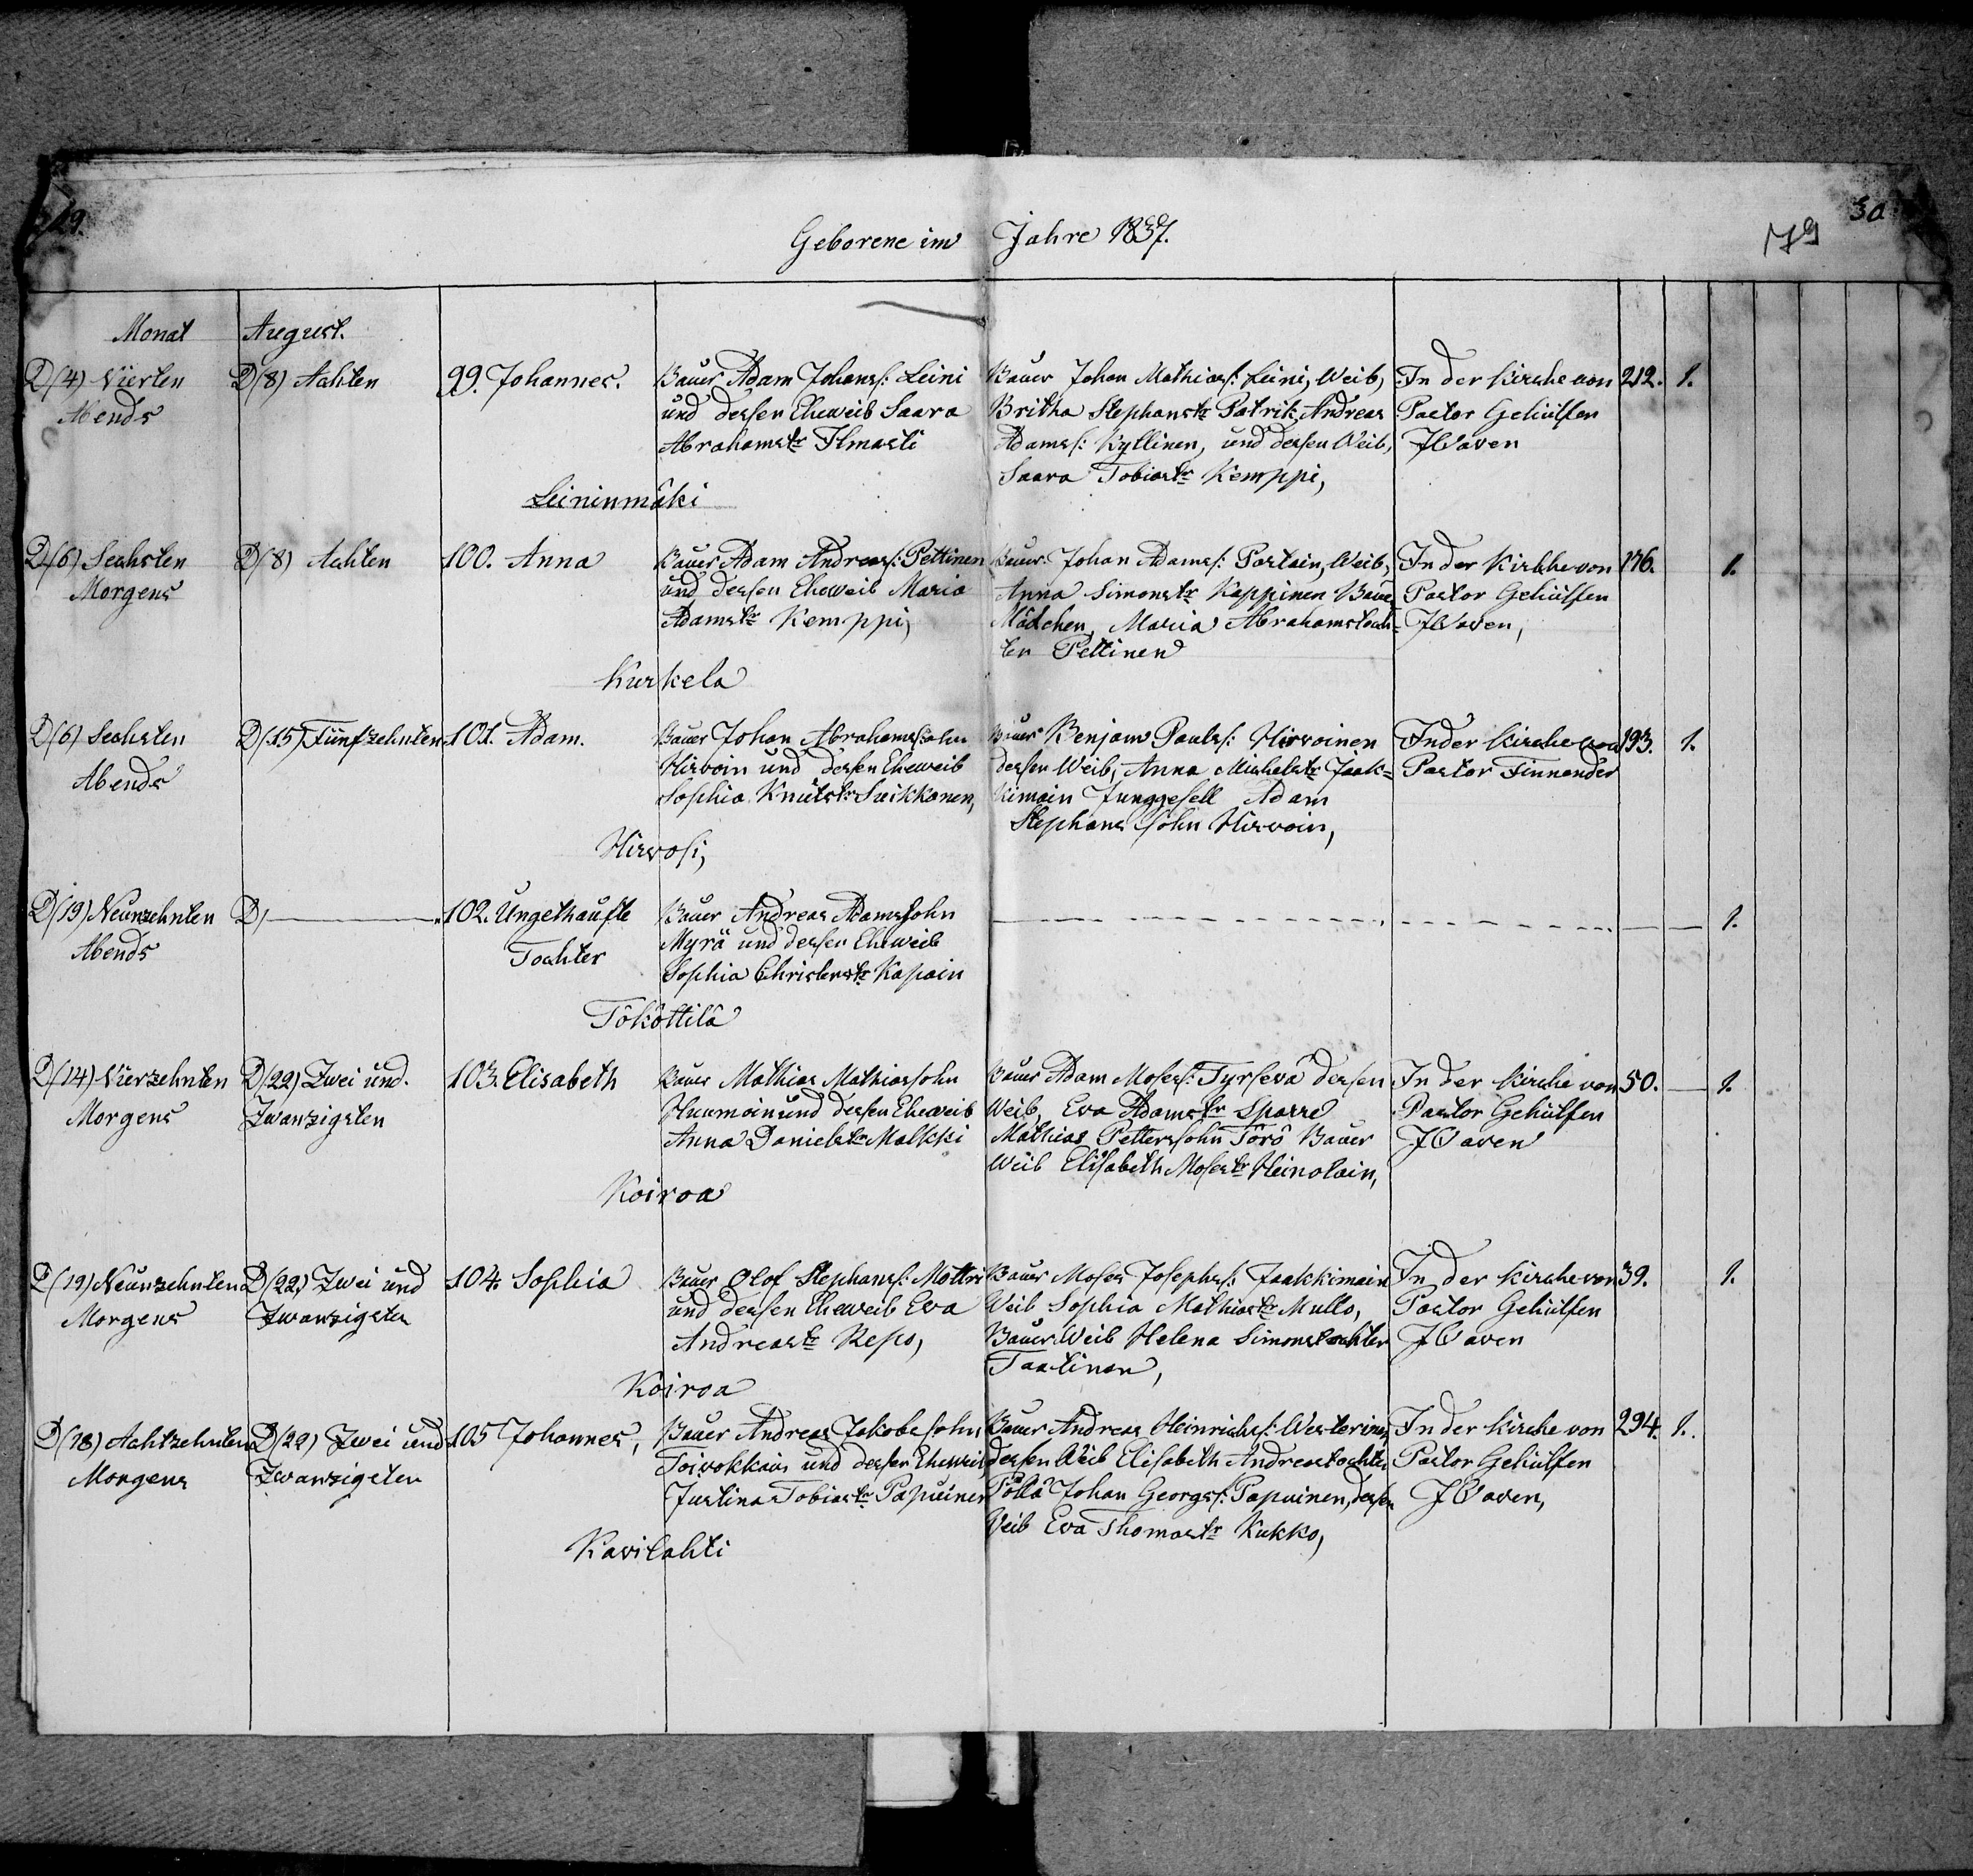 29.
30
79
Geborene im Jahre 1837.
Monat August.
D/(4) Vierten
Abends
D/(8) Achten
99. Johannes.
Bauer Adam Johans/: Leini
und dessen Eheweib Saara
Abrahamstr Ilmasti
Bauer Johan Mathias/: Leini, Weib,
Britha Stephanstr Patrik, Andreas
Adams/: Kyllinen, und dessen Weib,
Saara Tobiastr Kemppi,
In der Kirche von
Pastor Gehülfen
212. 1.
Leininmäki
D/(6) Sechsten
Morgens
D/(8) Achten
100. Anna
Bauer Adam Andreas/: Pettinen
und dessen Eheweib Maria
Adamstr Kemppi,
Bauer Johan Adams/: Partain, Weib,
Anna Simonstr Kappinen Bauer
Mädchen, Maria Abrahamstoch-
ter Pettinen
In der Kirche von
Pastor Gehülfen
176. 1.
Kurkela
D/(6) Sechsten
Abends
D/(15) Fünfzehnten
101. Adam.
Bauer Johan Abrahamssohn
Hirvoin und dessen Eheweib
Sophia Knutstr Suikkanen,
Bauer Benjam Pauls/: Hirvoinen
dessen Weib, Anna Michelstr Jaak=
kimain Junggesell Adam
Stephans sohn Hirvoin,
In der Kirche von
Pastor Finnander
193. 1.
Hirvosi,
D/(19) Neunzehnten
Abends
D/
102. Ungethaufte
Tochter
Bauer Andreas Adamssohn
Myrä und dessen Eheweib
Sophia Christerstr Kapain
1.
Tököttilä
D/(14) Vierzehnten
Morgens
D/(22) Zwei und
Zwanzigsten
103. Elisabeth
Bauer Mathias Mathiassohn
Huumoin und dessen Eheweib
Anna Danielstr Malkki
Bauer Adam Moses/: Tyrsevä dessen
Weib, Eva Adamstr Sparre
Mathias Petterssohn Törö Bauer
Weib Elisabeth Mosestr Heinolain,
In der Kirche von
Pastor Gehülfen
50. 1.
Koiroa
D/(19) Neunzehnten
Morgens
D/(22) Zwei und
Zwanzigsten
104. Sophia
Bauer Olof Stephans/: Mottri
und dessen Eheweib Eva
Andreastr Repo,
Bauer Moses Josephs/: Jaakkimain
Weib Sophia Mathiastr Mullo,
Bauer Weib Helena Simonstochter
Taatinen,
In der Kirche von
Pastor Gehülfen
39. 1.
Koiroa
D/(18) Achtzehnten
Morgens
D/(22) Zwei und
Zwanzigsten
105 Johannes,
Bauer Andreas Jakobssohn
Toivokkain und dessen Eheweib
Justina Tobiastr Papuinen
Bauer Andreas Heinrichs/: Westerinen
dessen Weib Elisabeth Andreastochter
Pöllä Johan Georgs/: Papuinen, dessen
Weib Eva Thomastr Kukko,
In der Kirche von
Pastor Gehülfen
294. 1.
Kavilahti